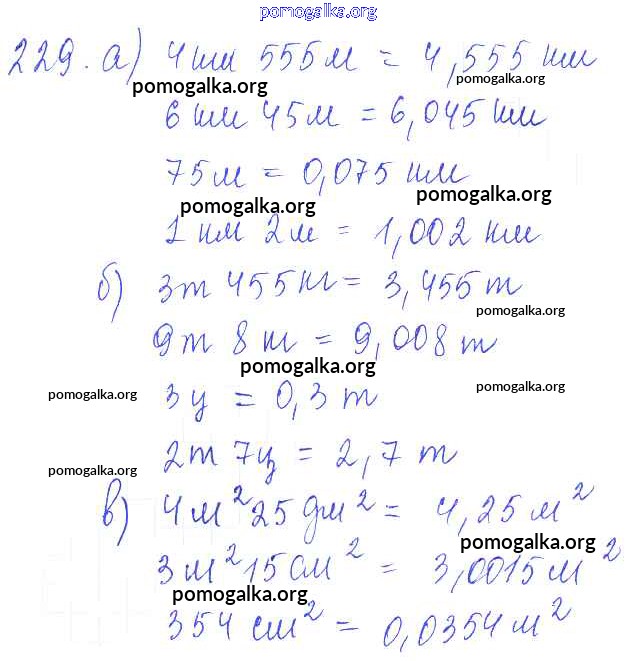 pomogalka.org
229. а) 4км 555м = 4,555 км
pomogalka.org pomogalka.org
6 км 45м = 6,045 км
75м = 0,075 км
pomogalka.org pomogalka.org
1 км 2м = 1,002 км
б) 3т 455кг = 3,455 т
pomogalka.org
9т 8 кг = 9,008 т
pomogalka.org
pomogalka.org 3ц = 0,3 т pomogalka.org
2т 7ц = 2,7 т
pomogalka.org
в) 4м² 25 дм² = 4,25 м²
pomogalka.org
3м² 15см² = 3,0015м²
pomogalka.org
354 см² = 0,0354м²